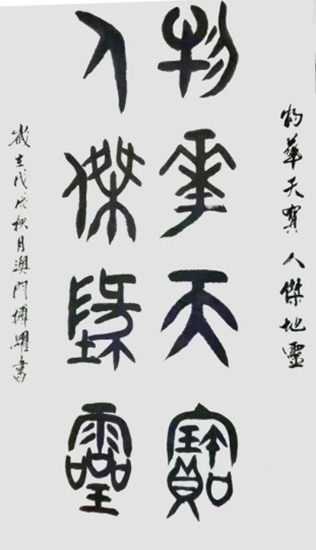 物華天寶人傑地靈
物華天寶
人傑地靈
歲在戊戌秋月澳門書